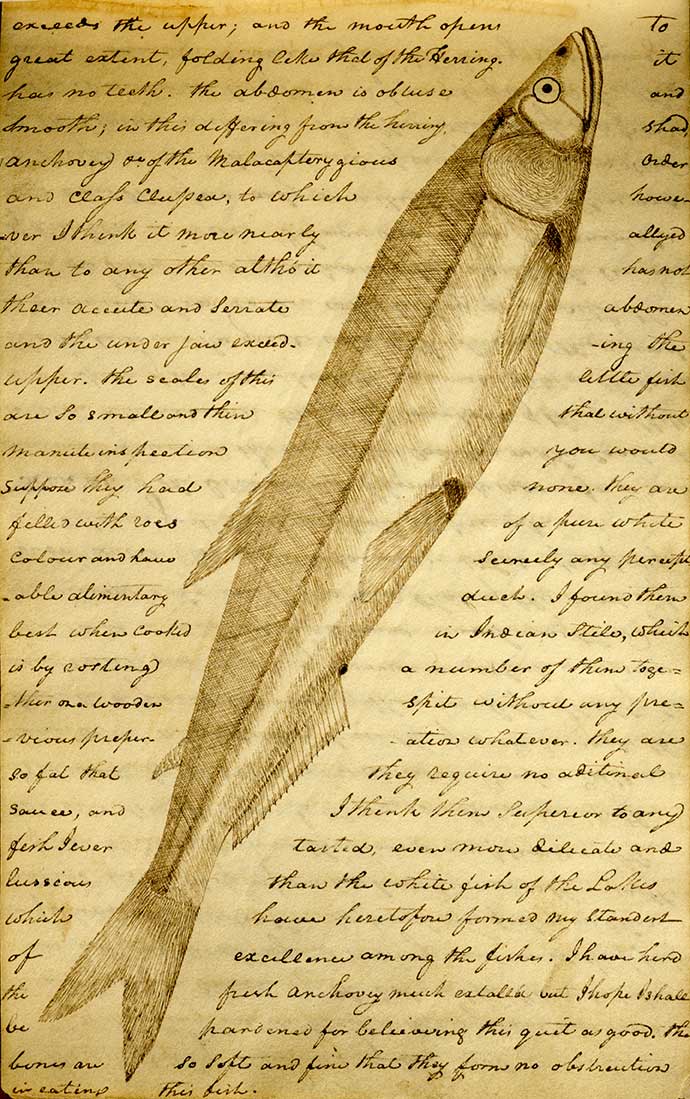 exceeds the upper; and the mouth opens to
great extent, folding like that of the Herring. it
has no teeth. the abdomen is obtuse and
smooth; in this differing from the herring, shad,
anchovey &c of the Malacapterygious Order
and Class Clupea, to which howe-
-ver I think it more nearly allyed
than to any other altho' it has not
their accute and serrate abdomen
and the under jaw exceed- -ing the
upper. the scales of this little fish
are so small and thin that without
manute inspection you would
suppose they had none. they are
filled with roes of a pure white
colour and have scercely any percept
-able alimentary duct. I found them
best when cooked in Indian Stile, which
is by rosting a number of them toge=
-ther on a wooden spit without any pre=
-vious preper- -ation whatever. they are
so fat that they require no aditional
sauce, and I think them superior to any
fish I ever tasted, even more dilicate and
lusscious than the white fish of the Lakes
which have heretofore formed my standart
of excellence among the fishes. I have herd
the fresh anchovey much extalled but I hope I shall
be pardoned for believing this quit as good. the
bones are so soft and fine that they form no obstruction
in eating this fish.